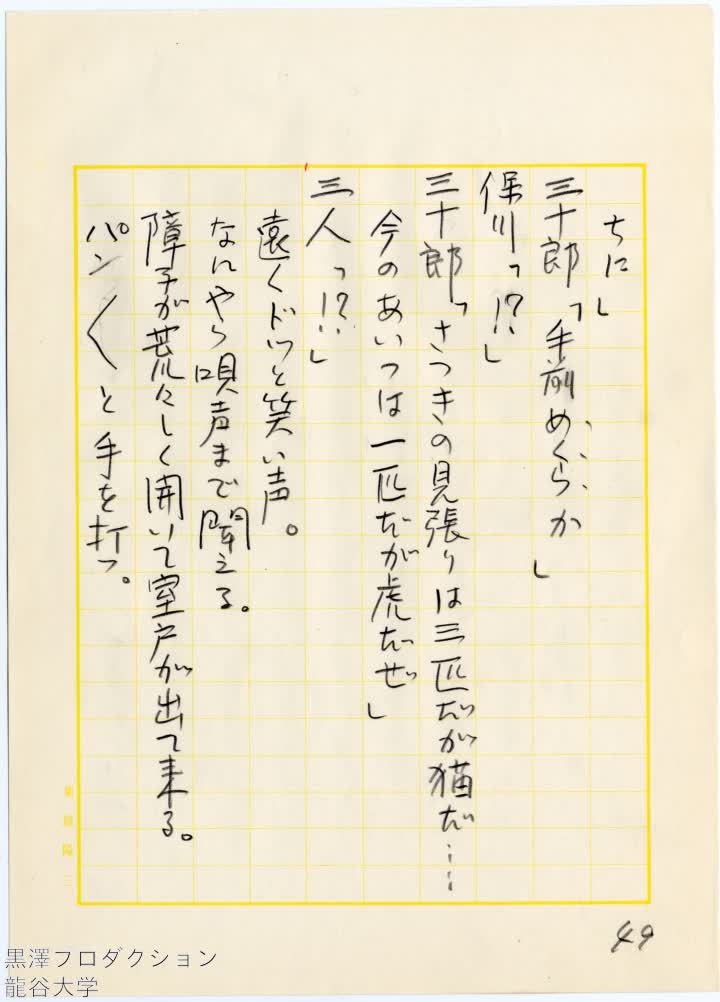 ちに」
三十郎「手前めくらか」
保川「!?……」
三十郎「さつきの見張りは三匹だが猫だ……
今のあいつは一匹だが虎だぜ」
三人「!?……」
遠くドッと笑い声。
なんやら唄声まで聞える。
障子が荒々しく開いて室戸が出て来る。
パン〱と手を打つ。
49
黒澤プロダクション
龍谷大学